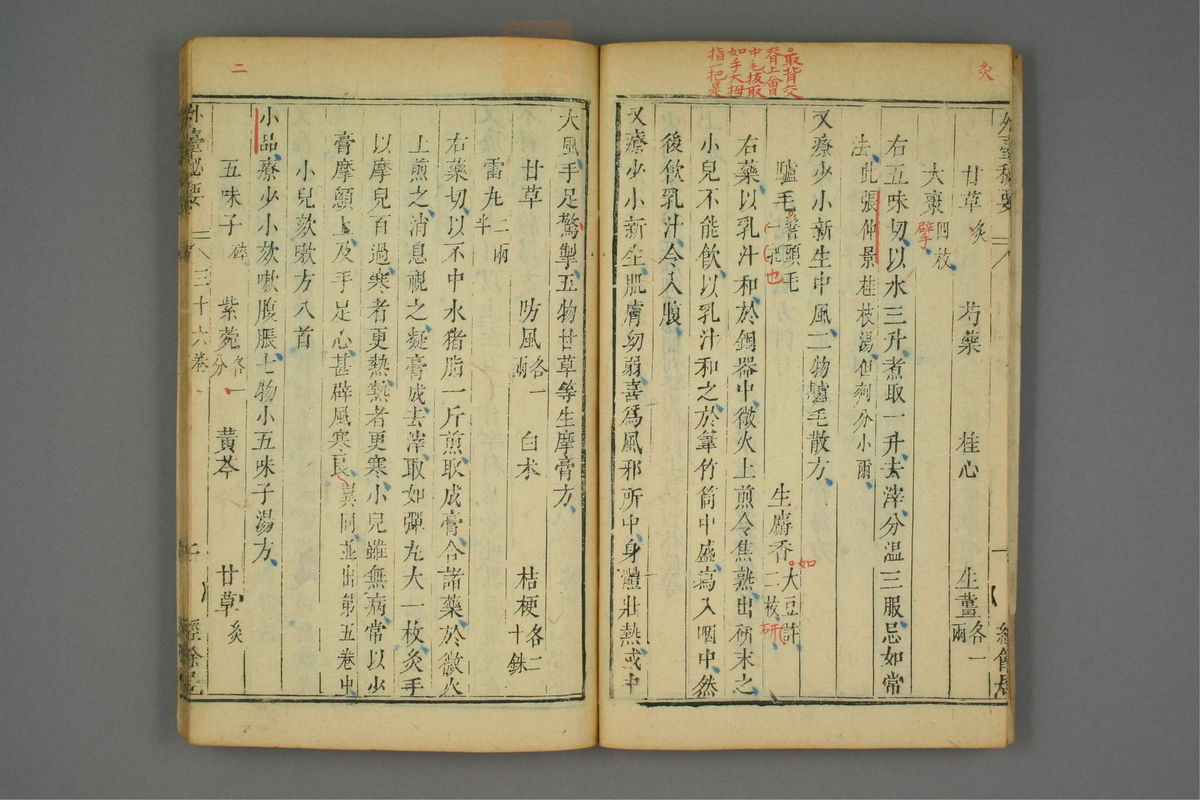 炙
。最背交
脊上會
中毛拔取
如手大拇
指一把是
外臺秘要
甘草炙 芍藥 桂心 生薑各一兩
大棗四枚擘
右五味切以水三升煮取一升去滓分溫三服忌如常
法此張仲景桂枝湯但劑分小爾
又療少小新生中風二物驢毛散方
驢毛一把 生麝香二
右藥以乳汁和於銅器中微火上煎令焦熟出硏末之
小兒不能飲以乳汁和之於葦竹筒中盛寫入咽中然
後飲乳汁令入腹
又療少小新生肌膚幼弱喜為風邪所中身體壯熱或中
二
大風手足驚掣五物甘草等生摩膏方
甘草 防風各一兩 白朮 桔梗各二十銖
雷丸二兩半
右藥切以不中水猪脂一斤煎取成膏合諸藥於微火
上煎之消息視之凝膏成去滓取如彈丸大一枚炙手
以摩兒百過寒者更熱熱者更寒小兒雖無病常以少
膏摩顖上及手足心甚辟風寒並出第五卷中
小兒欬嗽方八首
小品療少小欬嗽腹脹七物小五味子湯方
五味子碎 紫菀各一分 黃芩 甘草炙
外臺秘要 三十六卷 二 經餘居